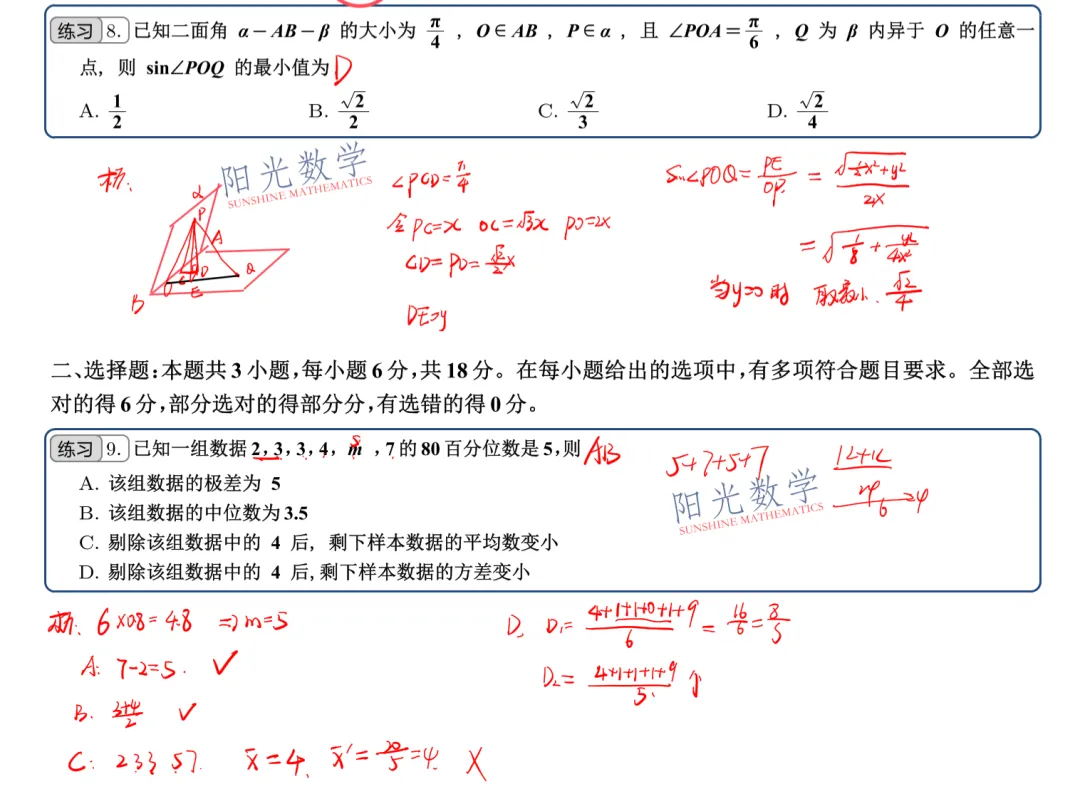 练习 8. 已知二面角 α－AB－β 的大小为 π/4 ，O∈AB ，P∈α ，且 ∠POA＝π/6 ，Q 为 β 内异于 O 的任意一
点，则 sin∠POQ 的最小值为 D
A. 1/2 B. √2/2 C. √2/3 D. √2/4
析:
α
P
A
D
Q
C
O
E
B
阳光数学
SUNSHINE MATHEMATICS
∠PCD=π/4
令PC=x OC=√3x PO=2x
CD=PD=√2/2x
DE=y
Sin∠POQ=PE/OP=√(1/2x²+y²)/2x
=√(1/8+y²/4x²)
当y=0时 取最小.√2/4
二、选择题：本题共 3 小题，每小题 6 分，共 18 分。在每小题给出的选项中，有多项符合题目要求。全部选
对的得 6 分，部分选对的得部分分，有选错的得 0 分。
练习 9. 已知一组数据 2，3，3，4，m ，7 的 80 百分位数是 5，则 AB
5
A. 该组数据的极差为 5
B. 该组数据的中位数为 3.5
C. 剔除该组数据中的 4 后，剩下样本数据的平均数变小
D. 剔除该组数据中的 4 后，剩下样本数据的方差变小
5+7+5+7
12+12
24
6
=4
阳光数学
SUNSHINE MATHEMATICS
析: 6×0.8=4.8 ⇒m=5
A: 7-2=5. ✓
B. 3+4/2 ✓
C: 2 3 3 5 7. x̄=4. x̄'=20/5=4. ×
D. D₁=4+1+1+0+1+9/6=16/6=8/5
D₂=4+1+1+1+9/5. ↑